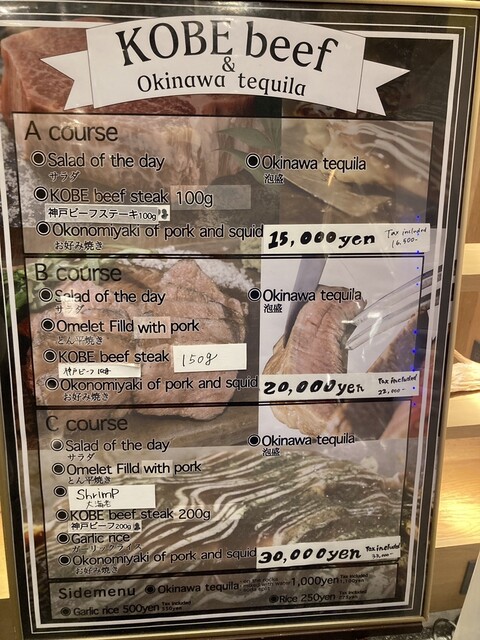 KOBE beef
&
Okinawa tequila
A course
Salad of the day
サラダ
Okinawa tequila
泡盛
KOBE beef steak 100g
神戸ビーフステーキ100g
Okonomiyaki of pork and squid
お好み焼き
15,000yen
Tax included
16,500-
B course
Salad of the day
サラダ
Okinawa tequila
泡盛
Omelet Filld with pork
とん平焼き
KOBE beef steak 150g
神戸ビーフ
Okonomiyaki of pork and squid
お好み焼き
20,000yen
Tax included
22,000-
C course
Salad of the day
サラダ
Okinawa tequila
泡盛
Omelet Filld with pork
とん平焼き
Shrimp
大海老
KOBE beef steak 200g
神戸ビーフ200g
Garlic rice
ガーリックライス
Okonomiyaki of pork and squid
お好み焼き
30,000yen
Tax included
33,000-
Sidemenu
Okinawa tequila
1,000yen
Tax included
Garlic rice 500yen
Tax included
Rice 250yen
Tax included